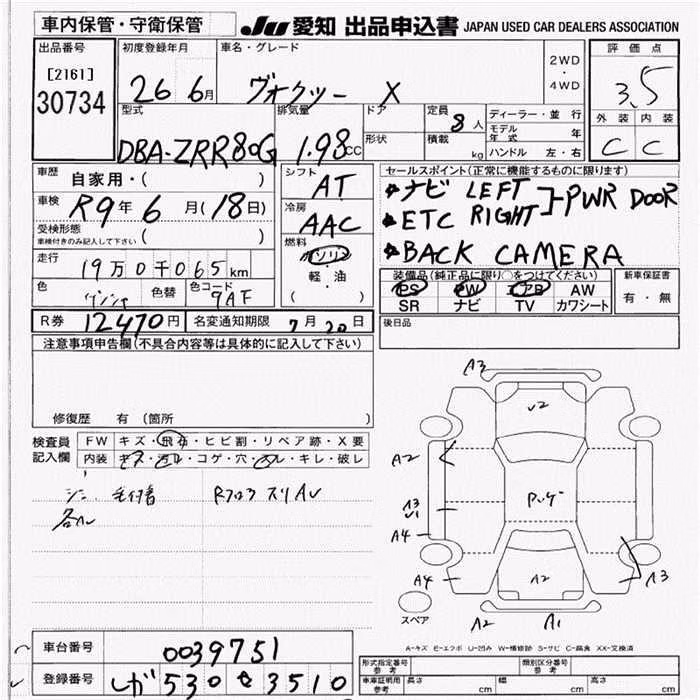 車内保管・守衛保管
JU 愛知 出品申込書 JAPAN USED CAR DEALERS ASSOCIATION
出品番号
[2161]
30734
初度登録年月
26 6月
車名・グレード
ヴォクシー X
2WD
・
4WD
評価点
3.5
外装 内装
C C
型式
DBA-ZRR80G
排気量
1.98CC
ドア
形状
定員
8人
積載
kg
ディーラー・並行
モデル年式 年
ハンドル 左・右
車歴
自家用・( )
車検
R9年6月(18日)
受検形態
車検付きのみ記入して下さい ( )
走行
19万0千065km
色
色替
色コード
9AF
シフト
AT
冷房
AAC
燃料
ガソリン
・
軽・油
( )
セールスポイント(正常に機能するものに限ります)
ナビ LEFT
ETC RIGHT PWR DOOR
BACK CAMERA
装備品(純正品に限り○をつけてください)
PS PW エアB AW
SR ナビ TV カワシート
新車保証書
有・無
R券 12470円
名変通知期限 7月20日
後日品
注意事項申告欄(不具合内容等は具体的に記入して下さい)
修復歴 有 (箇所 )
検査員
記入欄
FW キズ・飛石・ヒビ割・リペア跡・X要
内装 キズ・汚レ・コゲ・穴・スレ・キレ・破レ
Rフロア スリAV
A3
U2
A2
A3
U1
A4
A4
A2
A3
A2 A1
スペア
A-キズ E-エクボ U-凹み W-補修跡 S-サビ C-腐食 XX-交換済
車台番号
0039751
登録番号
530 そ 3510
形式指定番号
参考
類別区分番号
参考
車庫証明用
参考
長さ cm
幅 cm
高さ cm